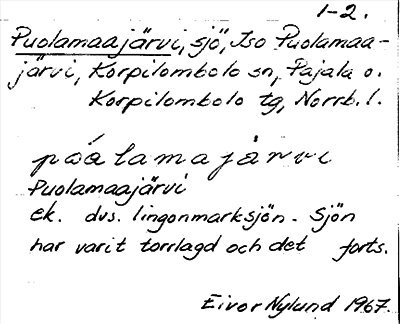 1-2.
Puolamaajärvi, sjö, Iso Puolamaa-
järvi, Korpilombolo sn, Pajala o.
Korpilombolo tg, Norrb. l.
Puolamaajärvi
ek. dvs. lingonmarksjön - Sjön
har varit torrlagd och det forts.
Eivor Nylund 1967.